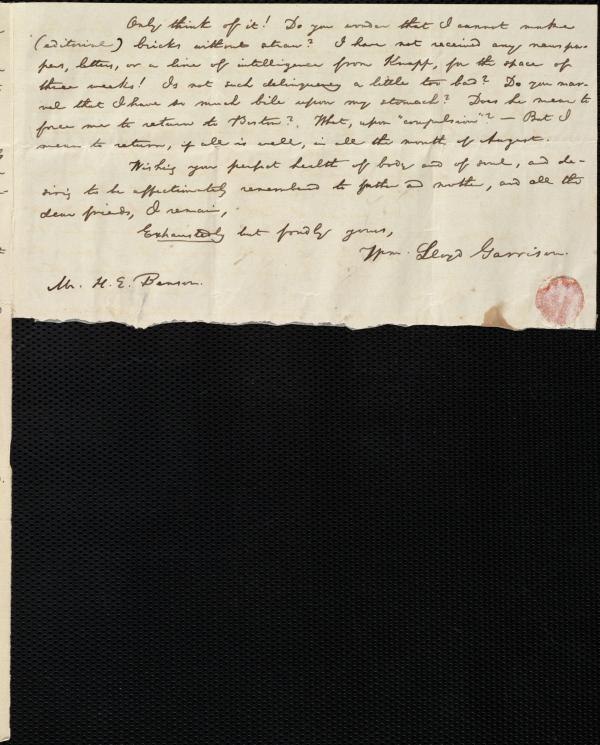 Only think of it! Do you wonder that I cannot make
(editorial) bricks without straw? I have not received any newspa-
pers, letters, or a line of intelligence from Knapp, for the space of
three weeks! Is not such delinquency a little too bad? Do you mar-
vel that I have so much bile upon my stomach? Does he mean to
force me to return to Boston? What, upon "compulsion"? — But I
mean to return, if all is well, in all the month of August.
Wishing you perfect health of body and of soul, and de-
siring to be affectionately remembered to father and mother, and all the
dear friends, I remain,
Exhaustedly but fondly yours,
Wm. Lloyd Garrison.
Mr. H. E. Benson.